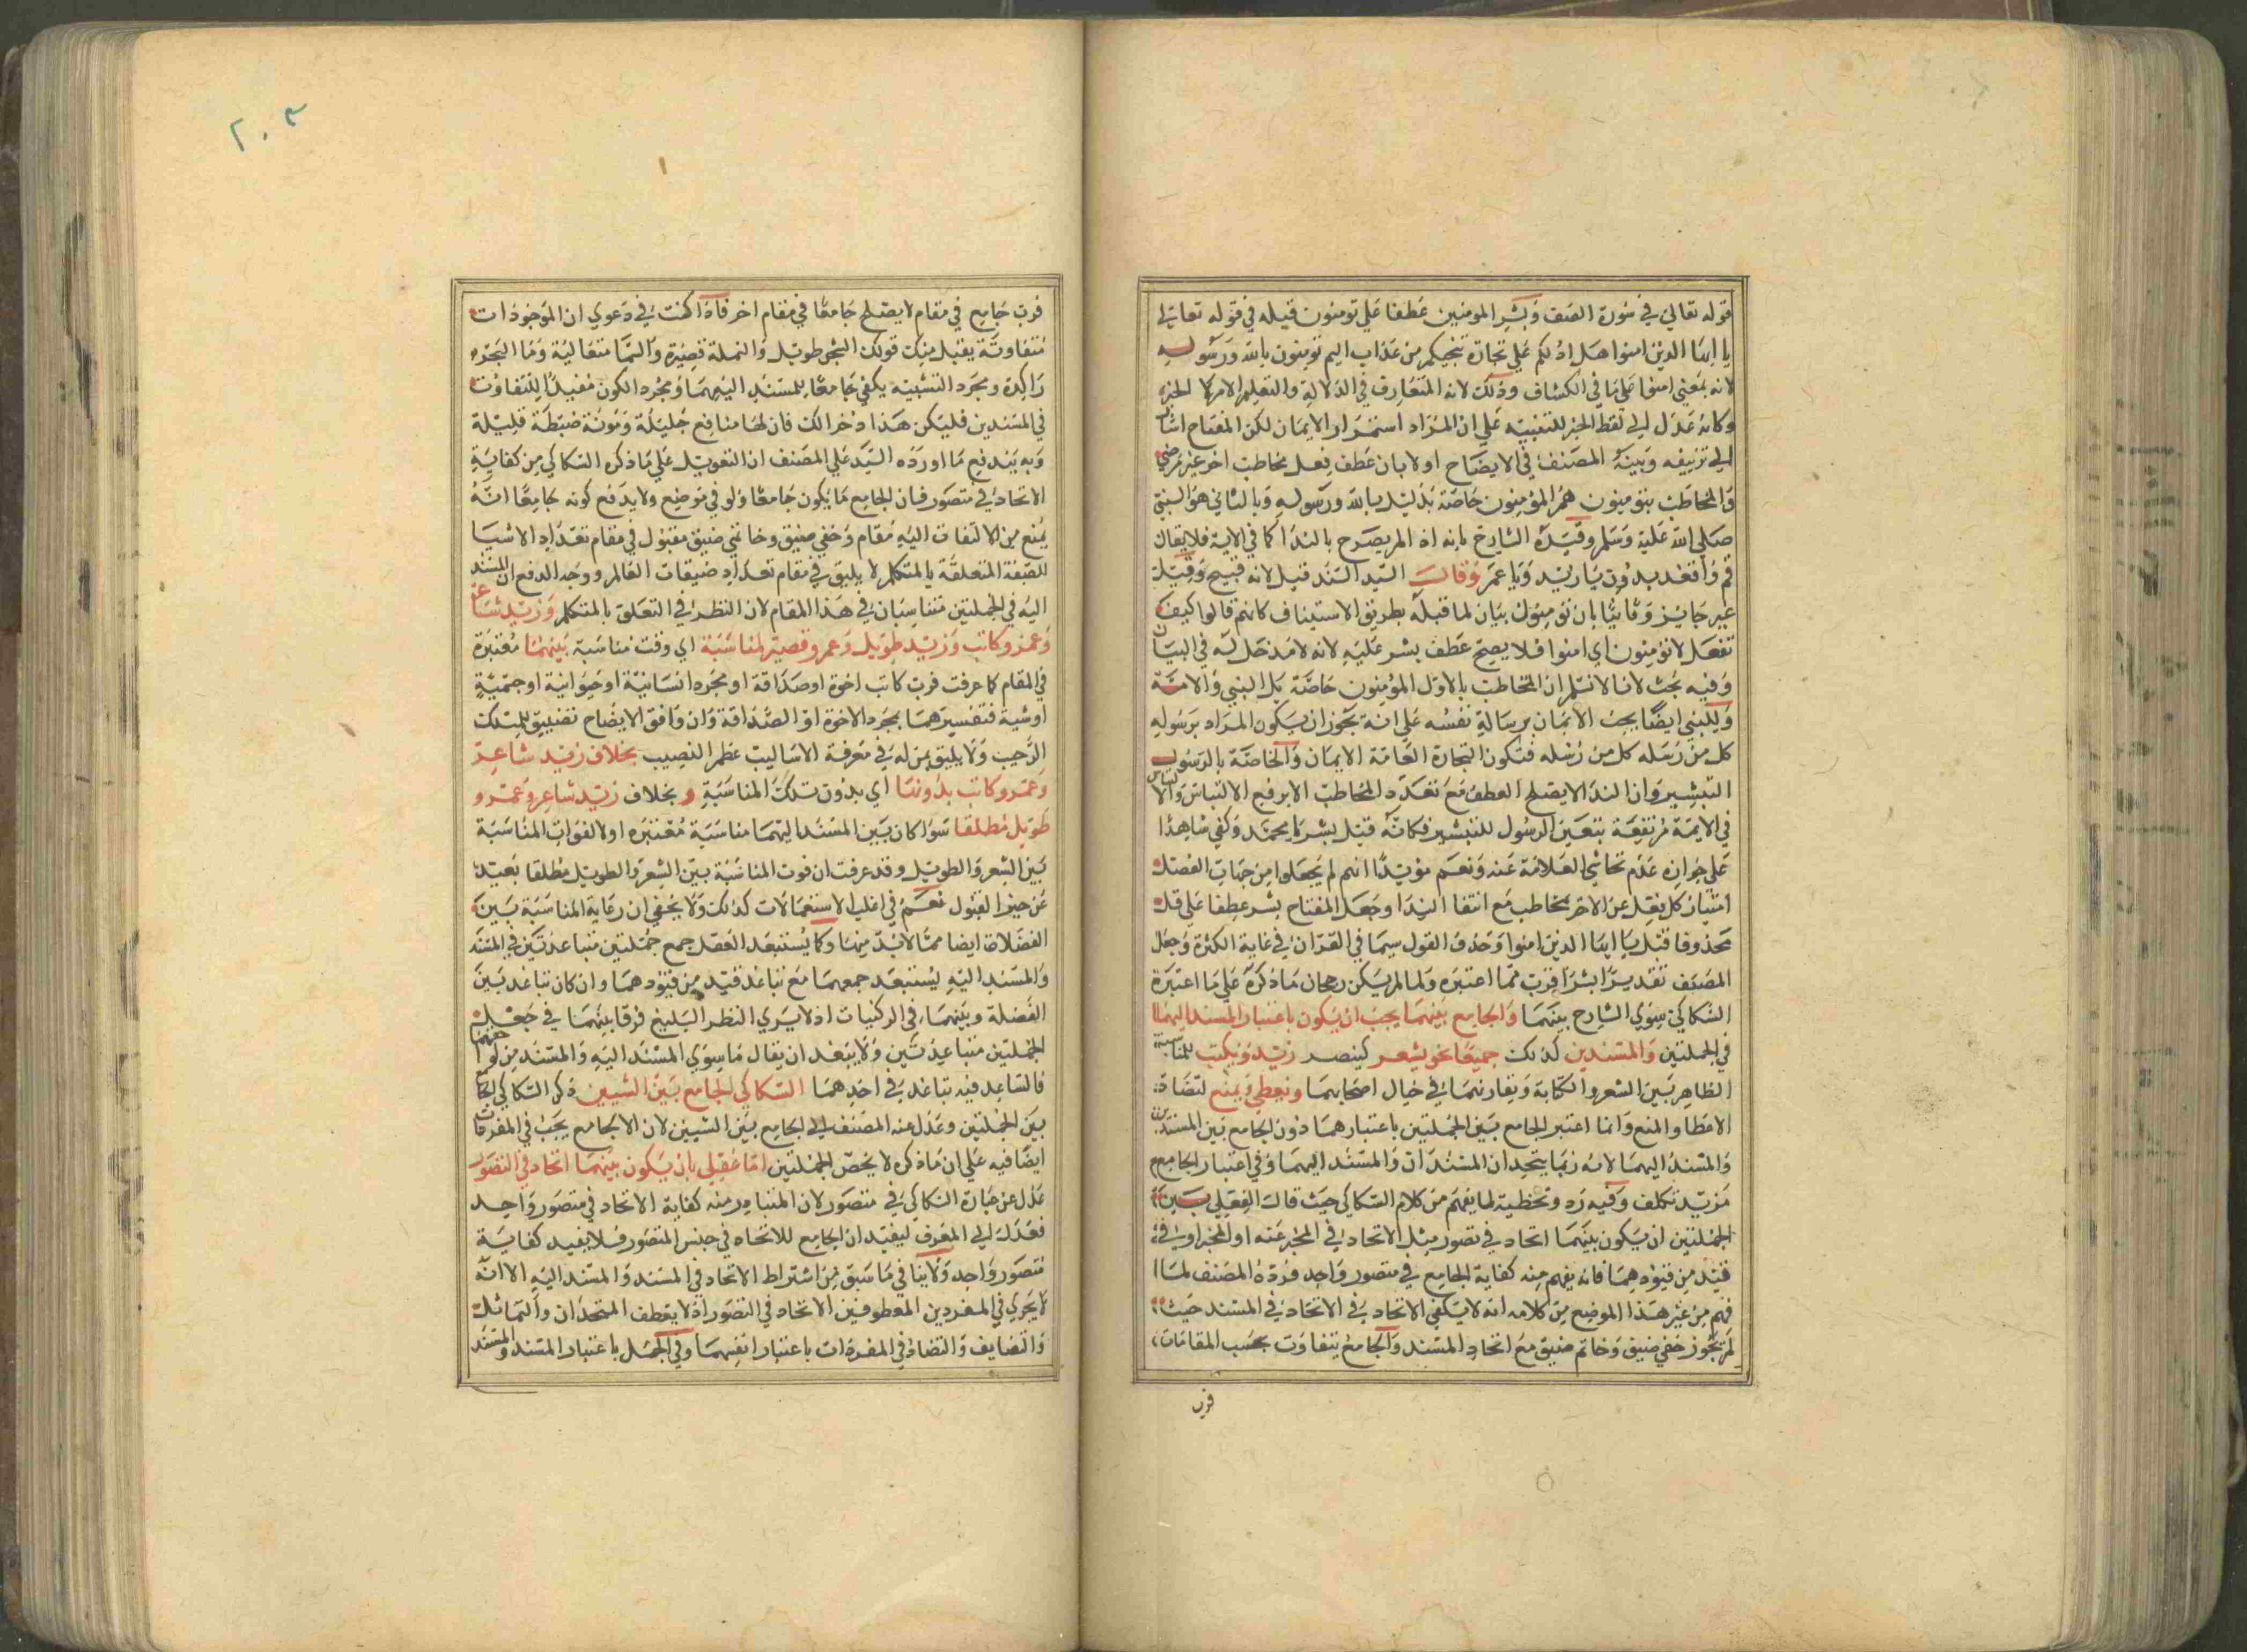 قوله تعالى في سورة الصف وبشر المومنين عطفا علي تومنون قبله في قوله تعالي
يا ايها الذين امنوا هل ادلكم علي تجارة تنجيكم من عذاب اليم تومنون بالله ورسوله
لانه بمعني امنوا علي ما في الكشاف وذلك لانه المتعارف في الدلالة والتعليم الامر لا الخبر
وكانه عدل الي لفظ الخبر للتنبيه علي ان المراد استمرار الايمان لكن المفتاح اشار
الي تزييفه وبينه المصنف في الايضاح اولا بان عطف فعل مخاطب اخر غير مرضي
والمخاطب بتومنون هم المؤمنون خاصة بدليل بالله ورسوله وبالثاني هو النبي
صلي الله عليه وسلم وقيده الشارح بانه اذ لم يصرح بالندا كما في الاية فلا يقال
قم واقعد بدون يا زيد ويا عمر وقال السيد السند قيل لانه قبيح وقيل
غير جايز وثانيا بان تومنون بيان لما قبله بطريق الاستيناف كانهم قالوا كيف
نفعل لا تؤمنون اي امنوا فلا يصح عطف بشر عليه لانه لا مدخل له في البيان
وفيه بحث لانا لا نسلم ان المخاطب بالاول المؤمنون خاصة بل النبي والامة
وللنبي ايضا يجب الايمان برسالة نفسه علي انه يجوز ان يكون المراد برسوله
كل من رسله كل من رسله فتكون التجارة العامة الايمان والخاصة بالرسول
التبشير وان الندا لا يصلح العطف مع تعدد المخاطب الا برفع الالتباس والالتباس
في الاية مرتفعة بتعين الرسول للتبشير فكانه قيل بشر يا محمد وكفي شاهدا
علي جوازه عدم تحاشي العلامة عنه ونعم مؤيدا انهم لم يجعلوا من جهات الفصل
امتياز كل بفعل عن الاخر بمخاطب مع انتفا الندا وجعل المفتاح بشر عطفا علي قل
محذوفا قبل يا ايها الذين امنوا وحذف القول سيما في القران في غاية الكثرة وجعل
المصنف تقديره ابشرا قرب مما اعتبره ولما لم يكن رجحان ما ذكره علي ما اعتبره
السكاكي سوي الشارح بينهما والجامع بينهما يجب ان يكون باعتبار المسند اليهما
في الجملتين والمسندين كذلك جميعا نحو يشعر كينصر زيد ويكتب للمناسبة
الظاهر بين الشعر والكتابة وتقارنهما في خيال اصحابهما ويعطي ويمنع لتضاد
الاعطا والمنع وانما اعتبر الجامع بين الجملتين باعتبارهما دون الجامع بين المسندين
والمسند اليهما لانه ربما يتحد ان المسندان والمسند اليهما وفي اعتبار الجامع
مزيد تكلف وفيه رد وتخطية لما يفهم من كلام السكاكي حيث قال العقلي بين
الجملتين ان يكون بينهما اتحاد في تصور مثل الاتحاد في المخبر عنه او المخبر او في
قيد من قيودهما فانه يفهم منه كفاية الجامع في متصور واحد فرده المصنف لما
فهم من غير هذا الموضع من كلامه انه لا يكفي الاتحاد في الاتحاد في المسند حيث
لم يجوز خفي ضيق وخاتم ضيق مع اتحاد المسند والجامع يتفاوت بحسب المقامات
فرب
٢٠٣
فرب جامع في مقام لا يصلح جامعا في مقام اخر فاذا كنت في دعوي ان الموجودات
متفاوتة يقبل منك قولك الشجر طويل والنملة قصيرة والسما متعالية وما البحر
راكدة ومجرد التشبيه يكفي جامعا للمسند اليهما ومجرد الكون مفيدا للتفاوت
في المسندين فليكن هذا دخرا لك فان لها منافع جليلة ومونة ضبطة قليلة
وبه يندفع ما اورده السيد علي المصنف ان التعويل علي ما ذكره السكاكي من كفاية
الاتحاد في متصور فان الجامع ما يكون جامعا ولو في موضع ولا يدفع كونه جامعا انه
يمنع من الالتفات اليه مقام وخفي ضيق وخاتمي ضيق مقبول في مقام تعداد الاشيا
الصفة المتعلقة بالمتكلم لا يليق في مقام تعداد ضيقات العالم ووجه الدفع ان المسند
اليه في الجملتين متناسبان في هذا المقام لان النظر في التعلق بالمتكلم وزيد شاعر
وعمرو كاتب وزيد طويل وعمرو قصير لمناسبة اي وقت مناسبة بينهما معتبرة
في المقام كما عرفت فرب كاتب اخوة او صداقة او مجرد انسانية او حيوانية او جسمية
او شيئة فتفسيرهما بمجرد الاخوة او الصداقة وان وافق الايضاح تضييق لمسلك
الرحيب ولا يليق بمن له في معرفة الاساليب عظم النصيب بخلاف زيد شاعر
وعمرو كاتب بدونها اي بدون تلك المناسبة وبخلاف زيد شاعر وعمرو
طويل مطلقا سوا كان بين المسند اليهما مناسبة معتبره او لا لفوات المناسبة
بين الشعر والطويل وقد عرفت ان فوت المناسبة بين الشعر والطويل مطلقا بعيد
عن حيز القبول نعم في اغلب الاستعمالات كذلك ولا يخفي ان رعاية المناسبة بين
الفضلات ايضا مما لا بد منها وكما يستبعد الفصل جمع جملتين متباعدتين في المسند
والمسند اليه يستبعد جمعهما مع تباعد قيد من قيودهما وان كان تباعد بين
الفضلة وبينهما في الركنيات اذ لا يري النظر البليغ فرقا بينهما في جعل
الجملتين متباعدتين ولا يبعد ان يقال ما سوي المسند اليه والمسند من لواحقهما
فالتباعد فيه تباعد في احدهما السكاكي الجامع بين الشيين ذكر السكاكي الجامع
بين الجملتين وعدل عنه المصنف الي الجامع بين الشيين لان الجامع يجب في المفردات
ايضا فيه علي ان ما ذكره لا يخص الجملتين اما عقلي بان يكون بينهما اتحاد في التصور
عدل عن عبارة السكاكي في متصور لان المتبادر منه كفاية الاتحاد في متصور واحد
فعدل الي المعرف ليفيد ان الجامع للاتحاد في جنس المتصور فلا يفيد كفاية
متصور واحد ولا ينافي ما سبق من اشتراط الاتحاد في المسند والمسند اليه الا انه
لا يجري في المفردين المعطوفين الاتحاد في التصور اذ لا يعطف المتحدان والتماثل
والتضايف والتضاد في المفردات باعتبار انفسهما وفي الجمل باعتبار المسند والمسند